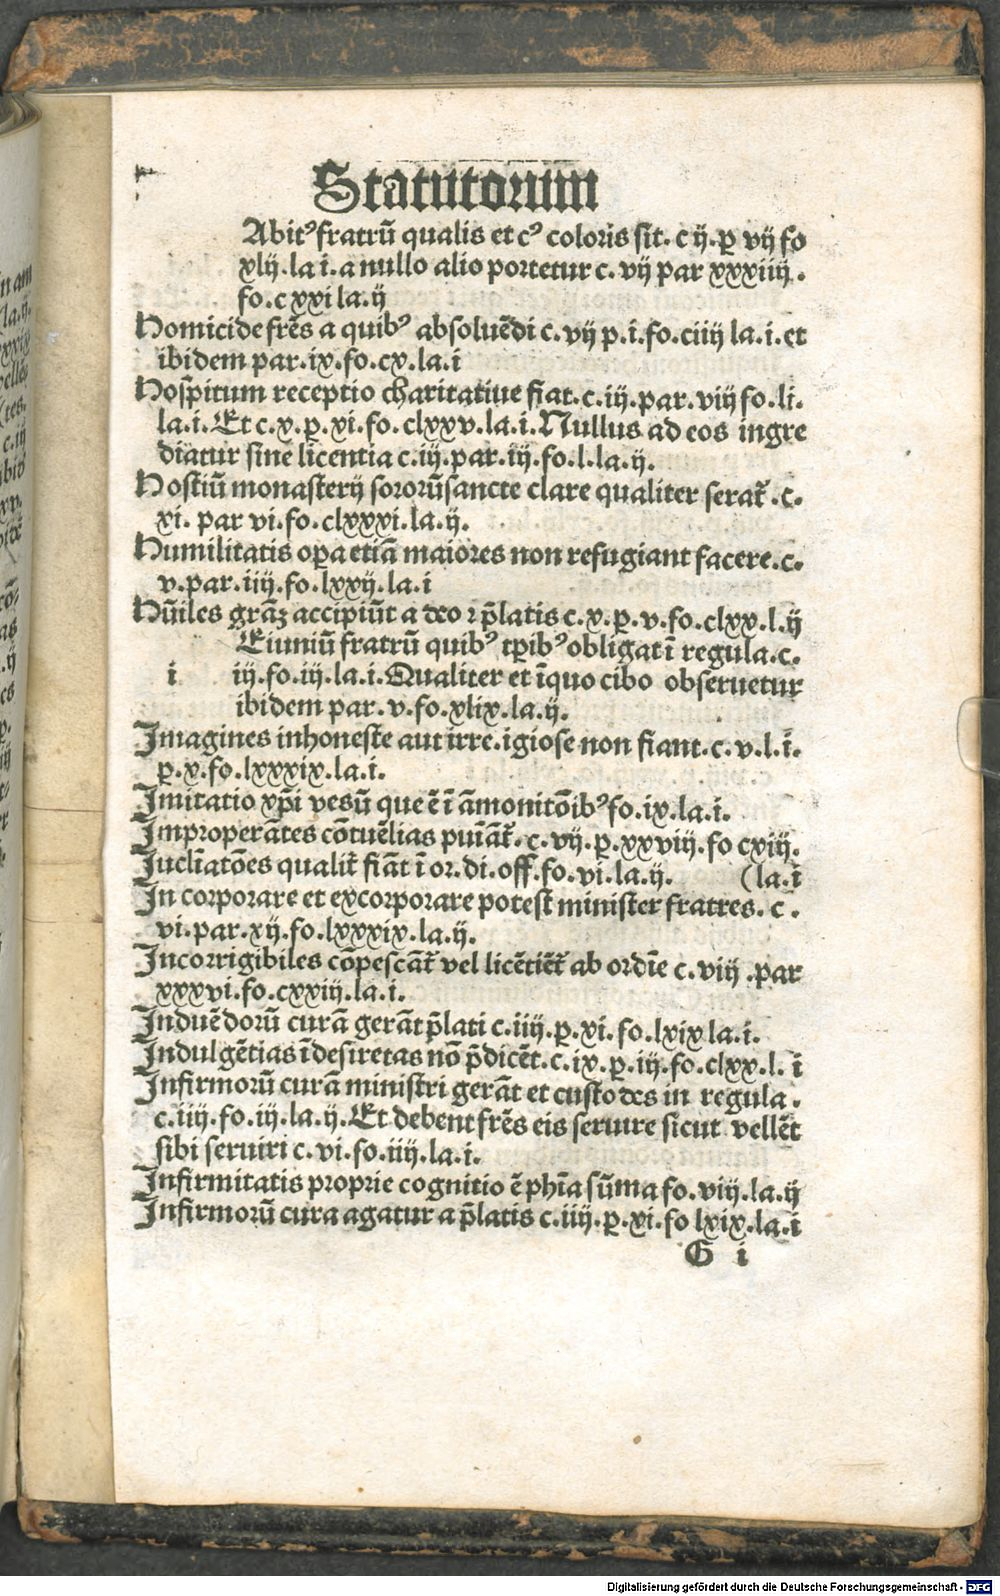 Statutorum
Abitꝰ fratrū qualis et cꝰ coloris sit. c ij. ꝑ vij fo
xlij. la i. a nullo alio portetur c. vij par xxxiiij.
fo. c xxi la. ij
Homicide frēs a quibꝰ absoluēdi c. vij p. i. fo. ciiij la. i. et
ibidem par. ix. fo. cx. la. i
Hospitum receptio charitatiue fiat. c. iij. par. viij fo. li.
la. i. Et c. x. ꝑ. xi. fo. clxxv. la. i. Nullus ad eos ingre
diatur sine licentia c. iij. par. iij. fo. l. la. ij.
Hostiū monasterij sororū sancte clare qualiter serat̄. c.
xi. par vi. fo. clxxxi. la. ij.
Humilitatis oꝑa etiā maiores non refugiant facere. c.
v. par. iiij. fo. lxxij. la. i
Hūiles grāꝫ accipiūt a deo ⁊ p̄latis c. x. ꝑ. v. fo. clxx. l. ij
Eiuniū fratrū quibꝰ tꝑibꝰ obligat ī regula. c.
i iij. fo. iij. la. i. Qualiter et īquo cibo obseruetur
ibidem par. v. fo. xlix. la. ij.
Imagines inhoneste aut irre.igiose non fiant. c. v. l. ī.
ꝑ. x. fo. lxxxix. la. i.
Imitatio xp̄i vesū que ē ī āmonitōibꝰ fo. ix. la. i.
Improperātes cōtuēlias puīāt̄. c. vij. ꝑ. xxviij. fo cxiij.
Iuclīatōes qualit̄ fiāt ī or. di. off. fo. vi. la. ij. (la. i
In corporare et excorporare potest minister fratres. c.
vi. par. xij. fo. lxxxix. la. ij.
Incorrigibiles cōpescāt̄ vel licētiēt̄ ab ordīe c. viij. par
xxxvi. fo. cxxiij. la. i.
Induēdorū curā gerāt p̄lati c. iiij. ꝑ. xi. fo. lxix la. i.
Indulgētias īdesiretas nō p̄dicēt. c. ix. ꝑ. iij. fo. clxx. l. i
Infirmorū curā ministri gerāt et custodes in regula.
c. iiij. fo. iij. la. ij. Et debent frēs eis seruire sicut vellēt
sibi seruiri c. vi. fo. iiij. la. i.
Infirmitatis proprie cognitio ē phīa sūma fo. viij. la. ij
Infirmorū cura agatur a p̄latis c. iiij. ꝑ. xi. fo lxix. la. i
G i
Digitalisierung gefördert durch die Deutsche Forschungsgemeinschaft - DFG